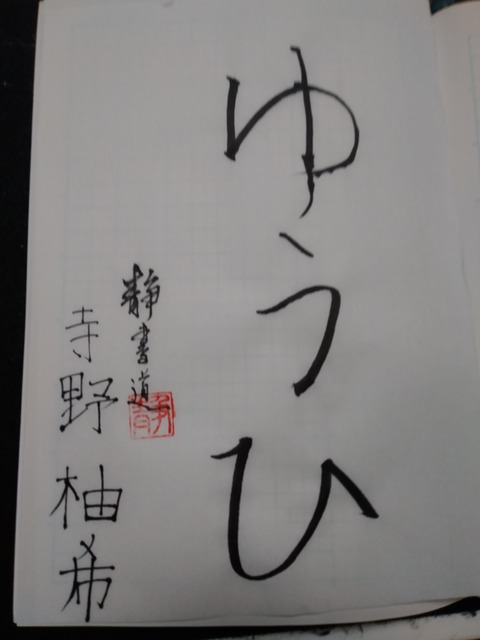 ゆうひ
靜書道
靜
寺野柚希